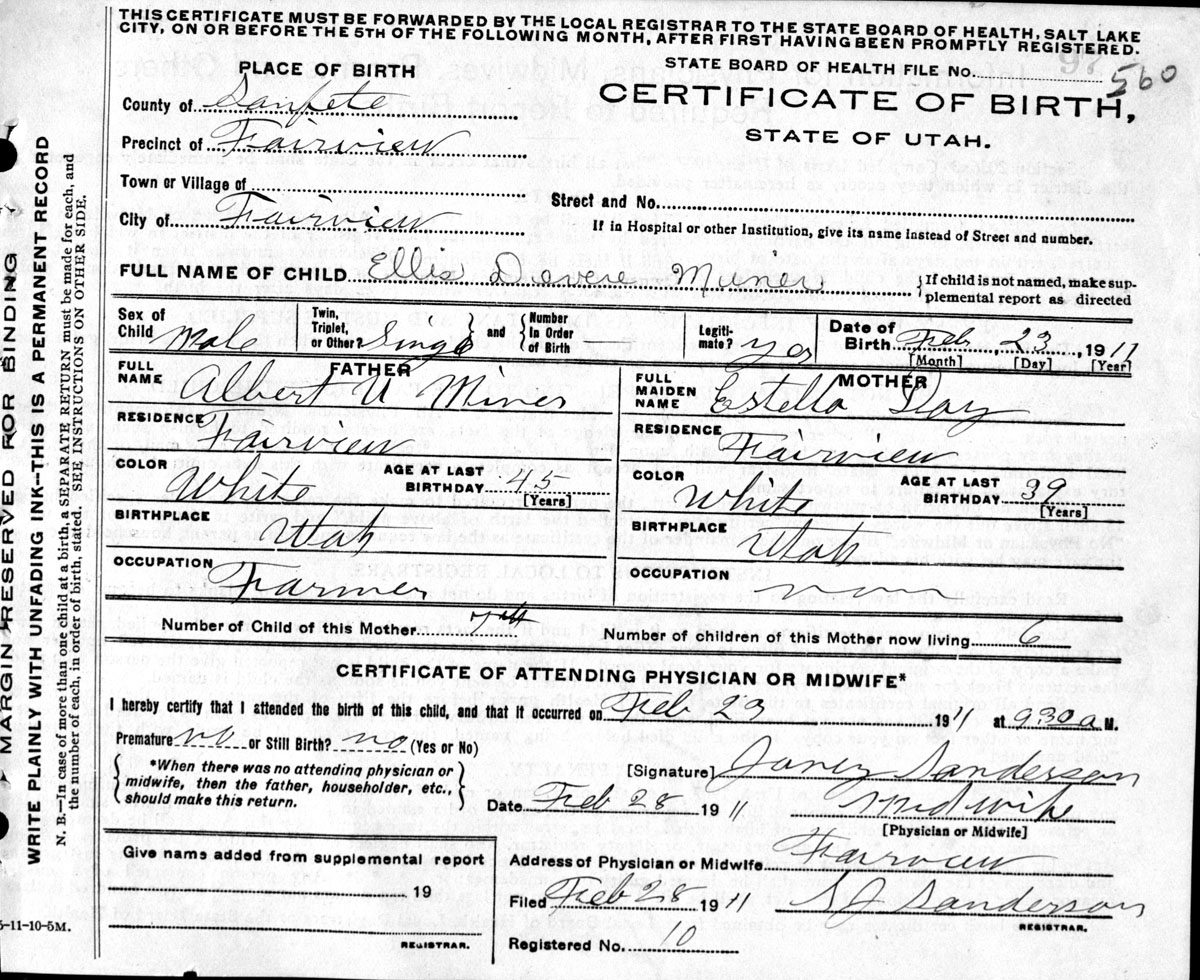 THIS CERTIFICATE MUST BE FORWARDED BY THE LOCAL REGISTRAR TO THE STATE BOARD OF HEALTH, SALT LAKE
CITY, ON OR BEFORE THE 5TH OF THE FOLLOWING MONTH, AFTER FIRST HAVING BEEN PROMPTLY REGISTERED.
PLACE OF BIRTH
STATE BOARD OF HEALTH FILE No. 97 560
County of Sanpete
CERTIFICATE OF BIRTH,
Precinct of Fairview
STATE OF UTAH.
Town or Village of
Street and No.
City of Fairview
If in Hospital or other Institution, give its name instead of Street and number.
FULL NAME OF CHILD Ellis Devere Miner
{If child is not named, make sup-
plemental report as directed
Sex of Child Male
Twin, Triplet, or Other? Single } and { Number In Order of Birth
Legiti- mate? yes
Date of Birth Feb 23, 1911
[Month] [Day] [Year]
FATHER
FULL NAME Albert U Miner
MOTHER
FULL MAIDEN NAME Estella Day
RESIDENCE Fairview
RESIDENCE Fairview
COLOR White AGE AT LAST BIRTHDAY 45 [Years]
COLOR White AGE AT LAST BIRTHDAY 39 [Years]
BIRTHPLACE Utah
BIRTHPLACE Utah
OCCUPATION Farmer
OCCUPATION
Number of Child of this Mother 7th
Number of children of this Mother now living 6
CERTIFICATE OF ATTENDING PHYSICIAN OR MIDWIFE*
I hereby certify that I attended the birth of this child, and that it occurred on Feb 23 1911 at 9.30 a M.
Premature no or Still Birth? no (Yes or No)
{ *When there was no attending physician or
midwife, then the father, householder, etc.,
should make this return. }
[Signature] Janey Sanderson
Date Feb 28 1911 Midwife
[Physician or Midwife]
Give name added from supplemental report
19
REGISTRAR.
Address of Physician or Midwife Fairview
Filed Feb 28 1911 S J Sanderson
REGISTRAR.
Registered No. 10
MARGIN RESERVED FOR BINDING
WRITE PLAINLY WITH UNFADING INK--THIS IS A PERMANENT RECORD
N. B.--In case of more than one child at a birth, a SEPARATE RETURN must be made for each, and
the number of each, in order of birth, stated. SEE INSTRUCTIONS ON OTHER SIDE.
5-11-10-5M.